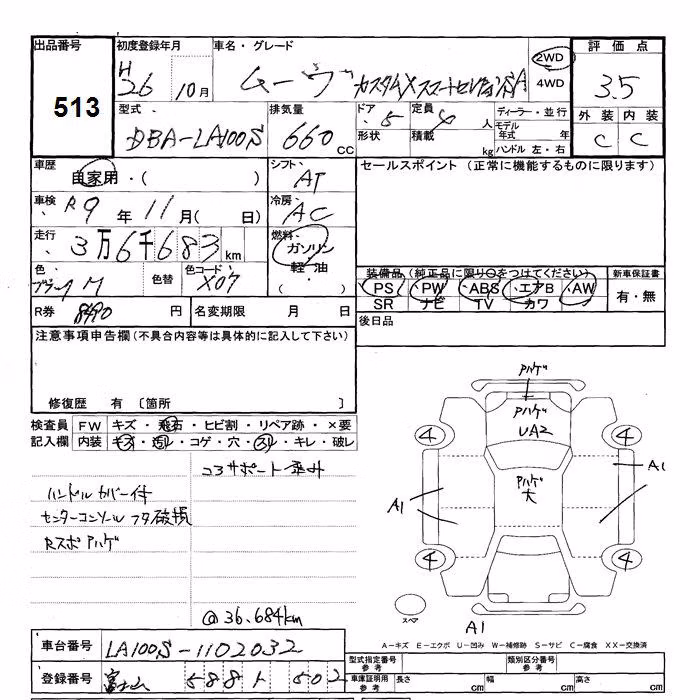 出品番号 初度登録年月 車名・グレード 評価点
513
H26 10月 ムーヴ カスタムXスマートセレクションSA 2WD 4WD 3.5
型式 排気量 ドア 定員 ディーラー・並行 外装 内装
DBA-LA100S 660CC ・5 4人 モデル年式 年 C C
形状 積載 kg ハンドル 左・右
車歴 自家用・( ) シフト AT セールスポイント (正常に機能するものに限ります)
車検 R9年11月( 日) 冷房 AC
走行 3万6千683km 燃料 ガソリン 軽油 ・( )
色 色替 色コード X07 装備品 (純正品に限り○をつけてください) 新車保証書
PS ・PW ・ABS ・エアB ・AW 有・無
SR ナビ TV カワ
R券 8490円 名変期限 月 日 後日品
注意事項申告欄 (不具合内容等は具体的に記入して下さい)
修復歴 有 〔箇所 〕
検査員 FW キズ・飛石・ヒビ割・リペア跡・×要
記入欄 内装 キズ・汚レ・コゲ・穴・スレ・キレ・破レ
コアサポート歪み
ハンドルカバー付
センターコンソールフタ破損
Rスポ Pハゲ
@36,684km
Pハゲ
Pハゲ
UA2
Pハゲ
大
4 4
A1 A1
4 4
スペア
A1
A-キズ E-エクボ U-凹み W-補修跡 S-サビ C-腐食 XX-交換済
車台番号 LA100S-1102032
型式指定番号 参考 類別区分番号 参考
登録番号 富士山 588 502
車庫証明用 参考 長さ cm 幅 cm 高さ cm